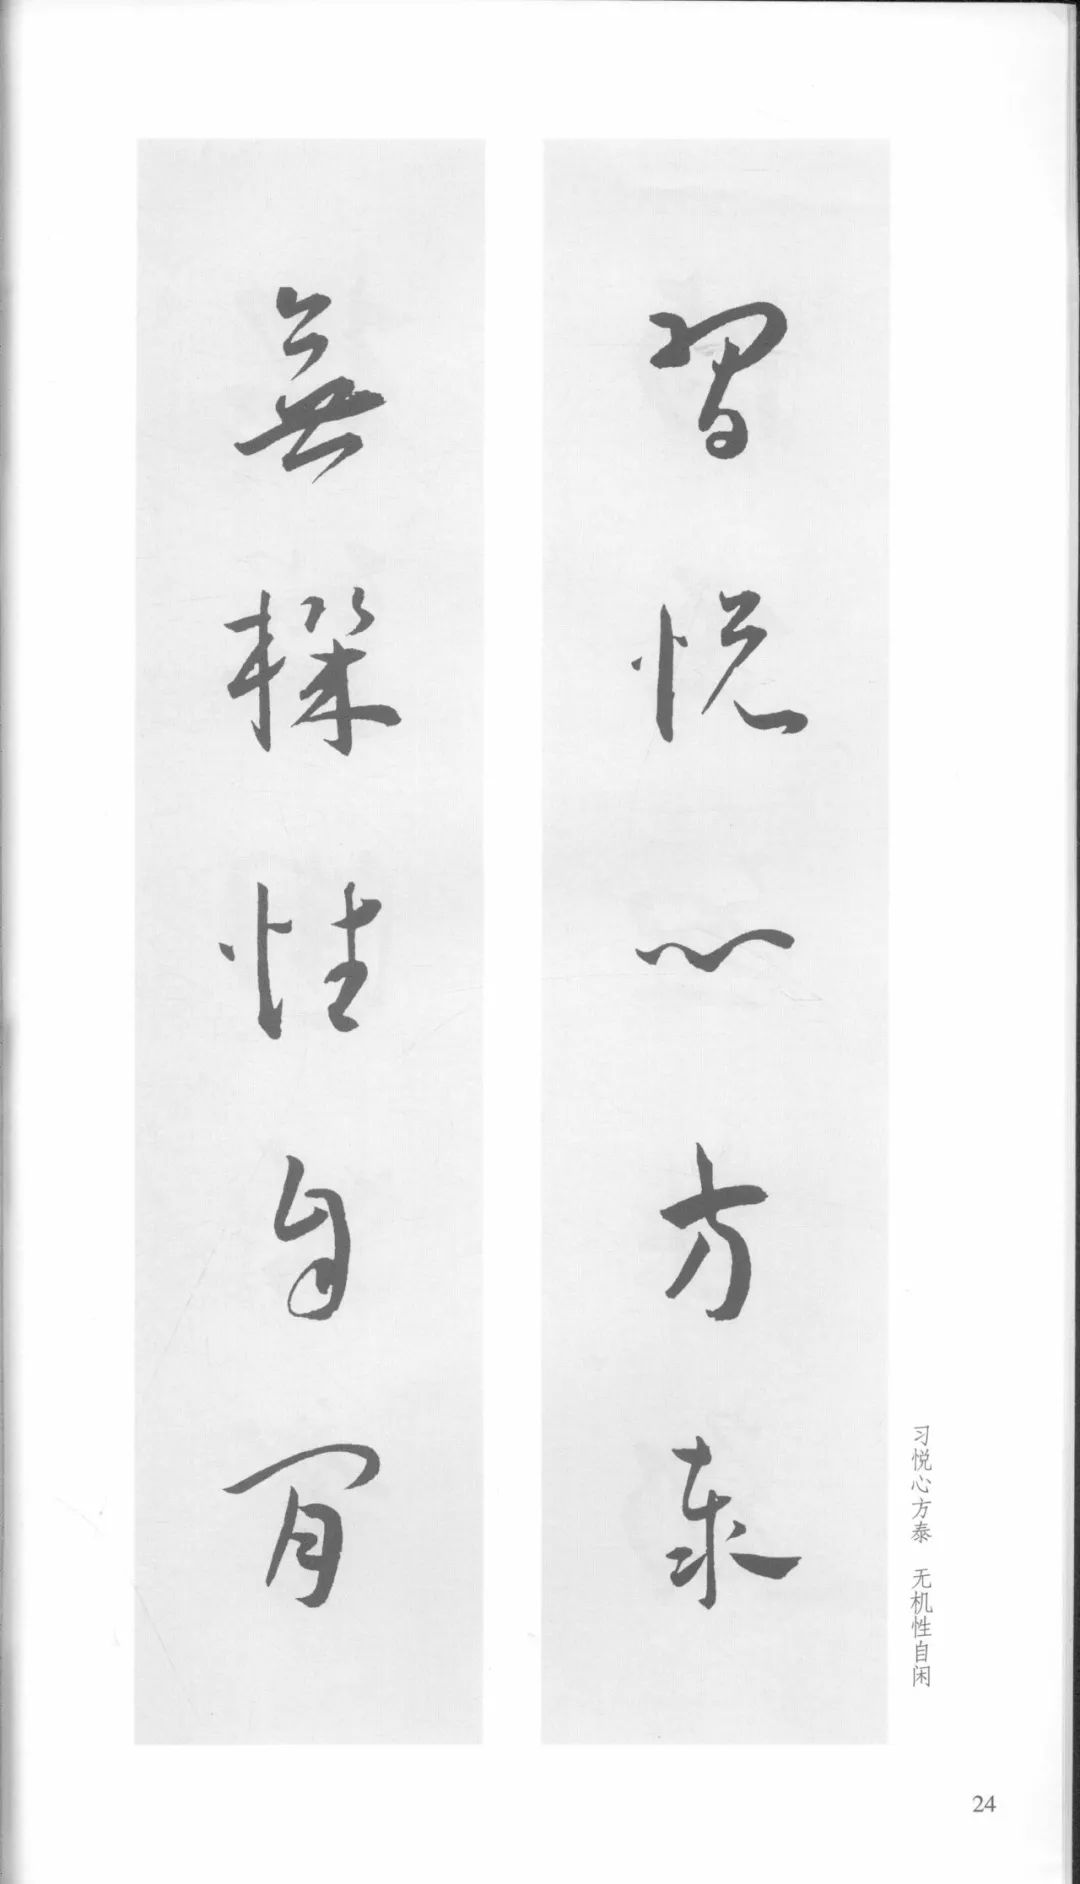 習悦心方泰
無機性自閒
习悦心方泰 无机性自闲
24